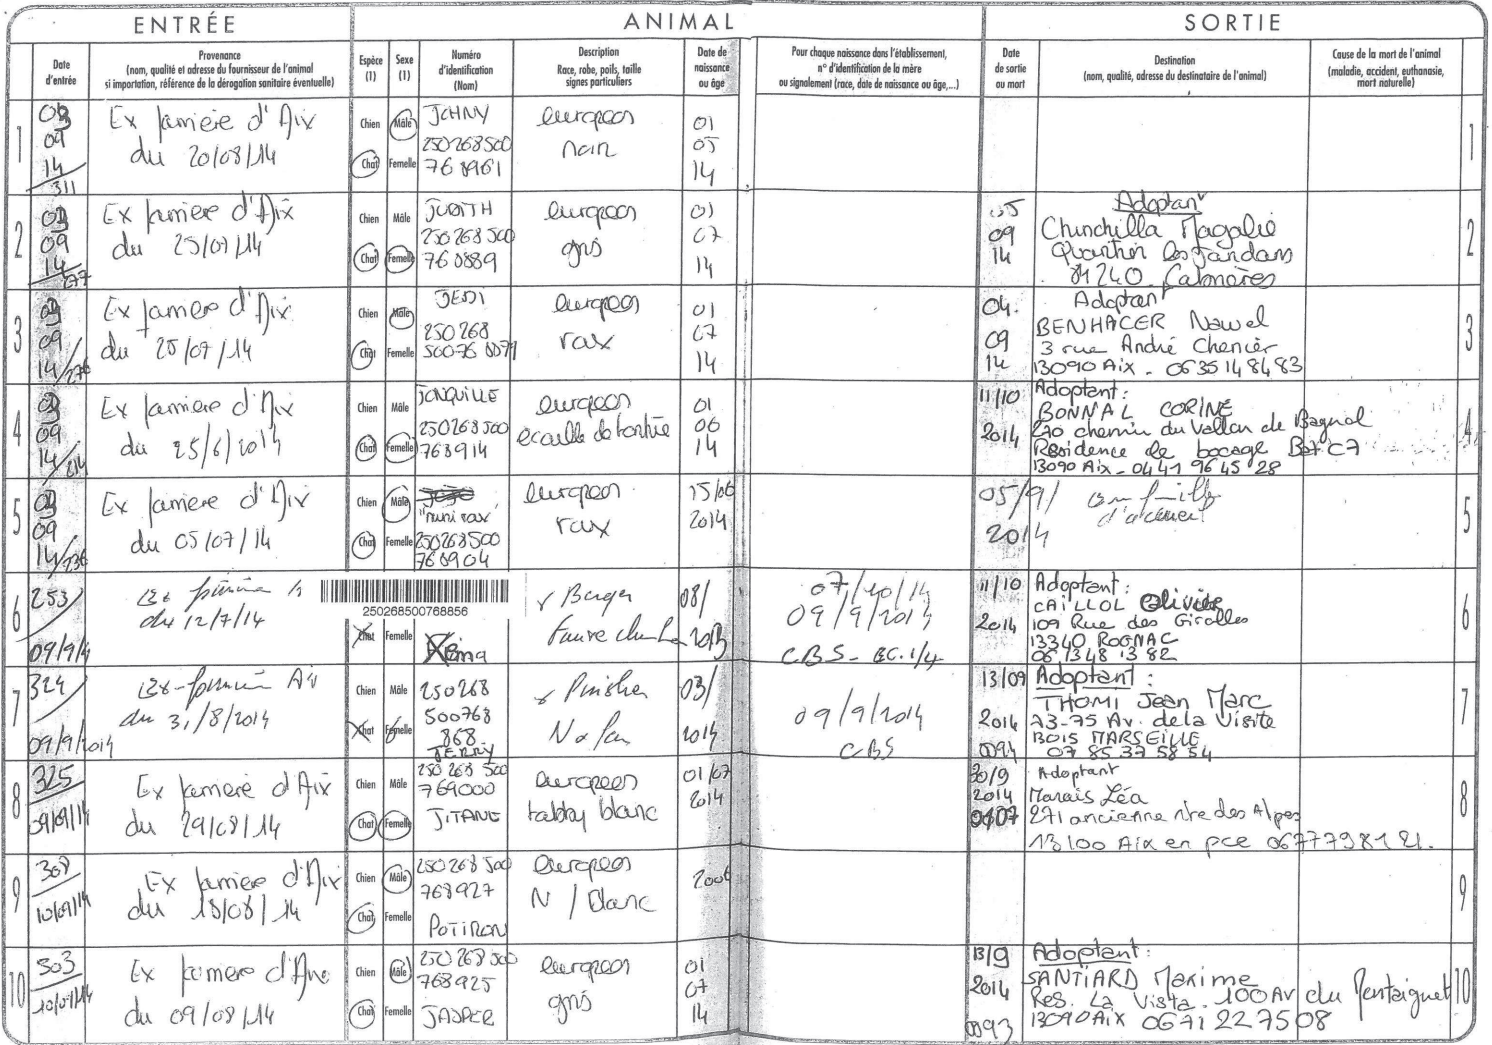 ENTRÉE
ANIMAL
SORTIE
Date
d'entrée
Provenance
(nom, qualité et adresse du fournisseur de l'animal
si importation, référence de la dérogation sanitaire éventuelle)
Espèce
(1)
Sexe
(1)
Numéro
d'identification
(Nom)
Description
Race, robe, poils, taille
signes particuliers
Date de
naissance
ou âge
Pour chaque naissance dans l'établissement,
n° d'identification de la mère
ou signalement (race, date de naissance ou âge,...)
Date
de sortie
ou mort
Destination
(nom, qualité, adresse du destinataire de l'animal)
Cause de la mort de l'animal
(maladie, accident, euthanasie,
mort naturelle)
1
09
14
311
Ex fourrière d'Aix
du 20/08/14
Chien Mâle
Chat Femelle
JOHNY
250268500
768961
européen
noir
01
05
14
1
2
09
14
277
Ex fourrière d'Aix
du 25/07/14
Chien Mâle
Chat Femelle
JUDITH
250268500
768889
européen
gris
01
07
14
05
09
14
Adoptant
Chinchilla Magalie
Quartier les Jardans
2
3
09
14/276
Ex fourrière d'Aix
du 25/07/14
Chien Mâle
Chat Femelle
JEDI
250268
européen
roux
01
07
14
04
09
14
Adoptant
BENHACER Nawel
3 rue André Chenier
13090 Aix - 0635148483
3
4
09
14/214
Ex fourrière d'Aix
du 25/6/2014
Chien Mâle
Chat Femelle
JONQUILLE
250268500
768914
européen
écaille de tortue
01
06
14
11/10
2014
Adoptant :
BONNAL CORINE
270 chemin du Vallon de Bagnol
Residence de bocage Bat C7
13090 Aix - 0441 96 45 28
4
5
09
14/236
Ex fourrière d'Aix
du 05/07/14
Chien Mâle
Chat Femelle
"mini roux"
250268500
768904
européen
roux
15/06
2014
05/9/
2014
en famille
d'accueil
5
6
253
09/9/14
Ex fourrière
du 12/7/14
250268500768856
Chat Femelle
x Berger
08/
2013
07/10/14
09/9/2014
CBS - BC. 1/4
11/10
2014
Adoptant :
CAILLOL Olivier
109 Rue des Girolles
13340 ROGNAC
06 13 48 13 82
6
7
324
09/9/2014
Ex-fourrière Aix
du 31/8/2014
Chien Mâle
Chat Femelle
250268
500768
868
JERRY
x Pinscher
03/
2014
09/9/2014
CBS
13/09
2014
Adoptant :
THOMI Jean Marc
73-75 Av. de la Visite
MARSEILLE
07 85 37 58 54
7
8
325
09/09/14
Ex fourrière d'Aix
du 29/08/14
Chien Mâle
Chat Femelle
250 268 500
769000
JITANE
européen
tabby blanc
01/07
2014
30/9
2014
Adoptant
Marais Léa
271 ancienne rte des Alpes
13100 Aix en pce 0677798121.
8
9
308
10/09/14
Ex fourrière d'Aix
du 18/08/14
Chien Mâle
Chat Femelle
250 268 500
768927
POTIRON
européen
N / Blanc
9
10
303
10/09/14
Ex fourrière d'Aix
du 09/08/14
Chien Mâle
Chat Femelle
250 268 500
768925
JASPER
européen
gris
01
07
14
13/9
2014
Adoptant :
SANTIARD Maxime
Res. La Vista. 100 Av du Pentaignet
13090 AIX 0671227508
10